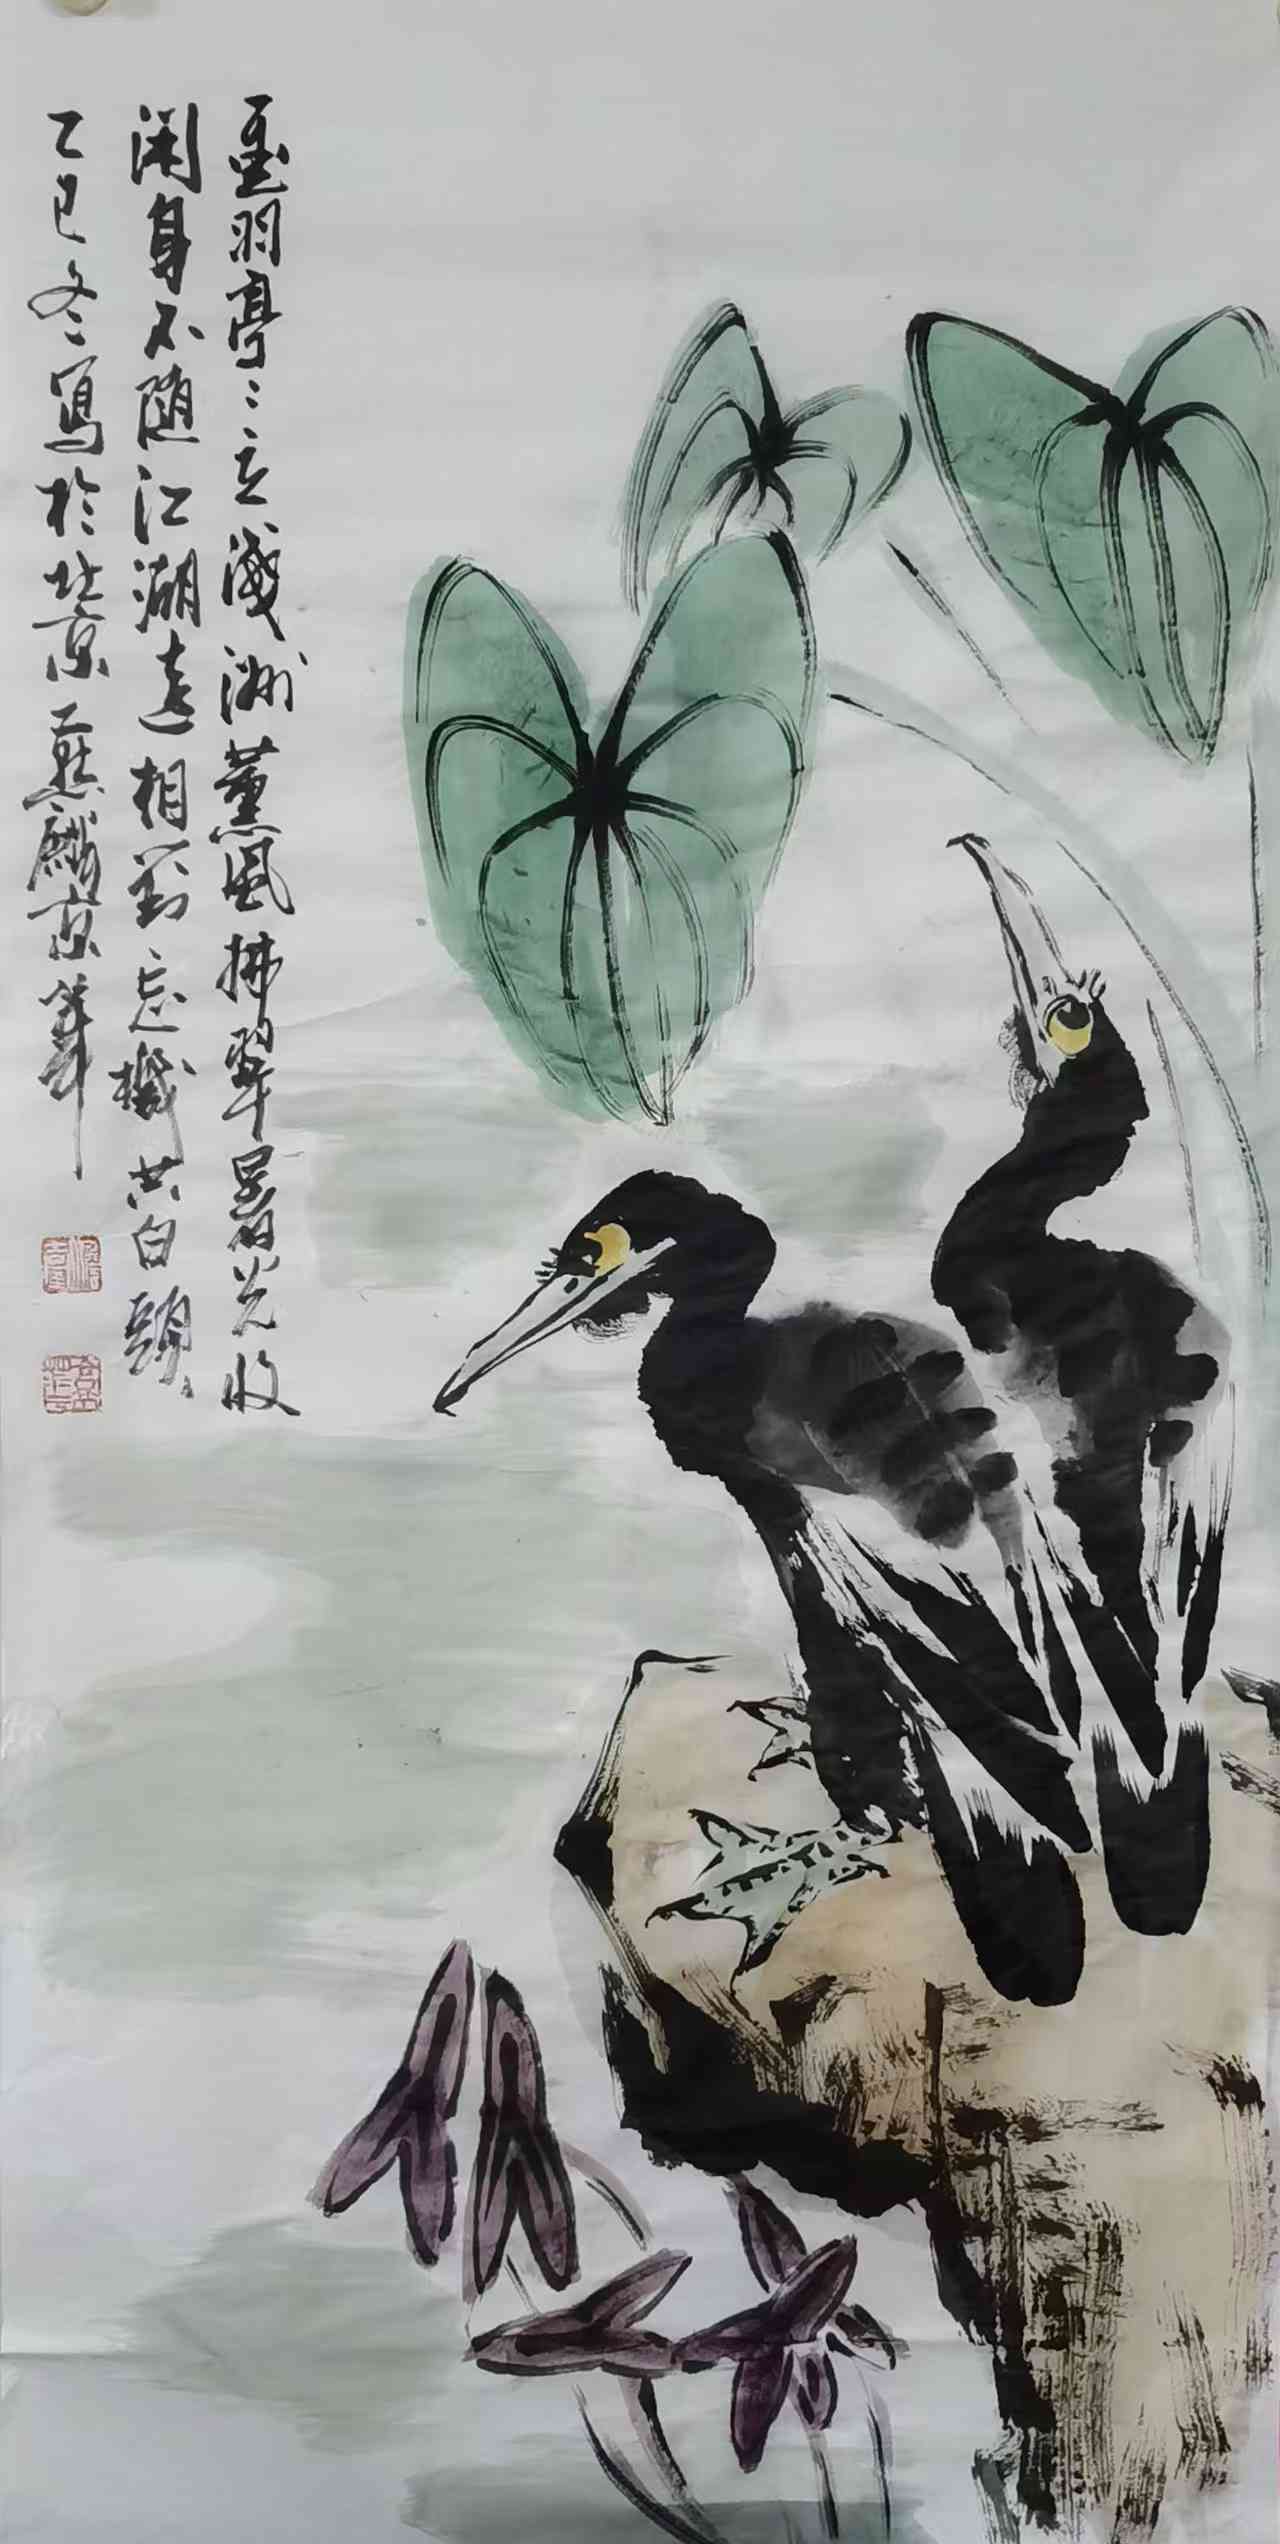 墨羽亭〻立淺洲薰風拂翠晷光收
閑身不随江湖遠相對忘機共白頭
乙巳冬寫於北京燕麟京華